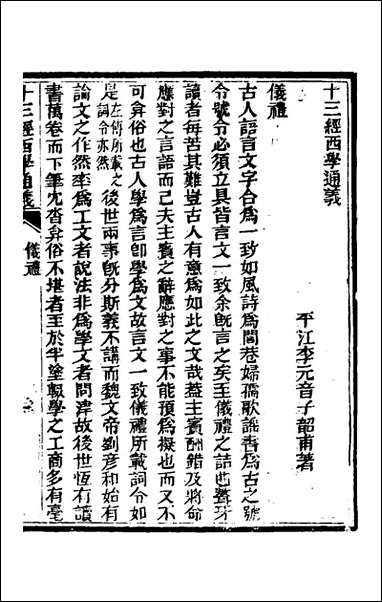 十三經西學通義
平江李元音子韶甫著
儀禮
古人語言文字合爲一致如風詩爲閭巷婦孺歌謠書爲古之號
令號令必須立具皆言文一致余旣言之矣至儀禮之詰曲聱牙
讀者每苦其難豈古人有意爲如此之文哉蓋主賓酬錯及將命
應對之言語而已夫主賓之辭應對之事不能預爲擬也而又不
可弇俗也古人學爲言卽學爲文故言文一致儀禮所載詞令如
是左傳所載之詞令亦然後世兩事旣分斯義不講而魏文帝劉彥和始有
論文之作然率爲工文者說法非爲學文者問津故後世恆有讀
書萬卷而下筆冗沓弇俗不堪者至於半塗輟學之工商多有毫
十三經西學通義
儀禮